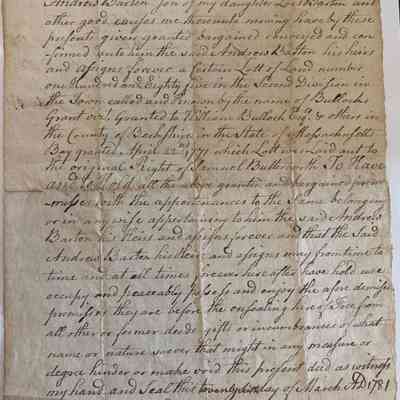 Andrew Barton Son of my daughter Lois Barton and
other good causes me hereunto moving have by these
presents given granted bargained conveyed and con
firmed unto him the said Andrew Barton his heirs
and assigns forever a Certain Lott of Land number
one Hundred and Eighty five in the Second Division in
the Town called and known by the name of Bullocks
Grant viz. Granted to William Bullock Esqr. & others in
the County of Berkshire in the State of Massachusetts
Bay granted April 22nd 1771 which Lott was laid out to
the original Right of Samuel Butterworth To Have
and to Hold all the above granted and bargained pre
misses with the appurtenances to the Same belonging
or in any wise appertaining to him the said Andrew
Barton his Heirs and assigns forever and that the Said
Andrew Barton his heirs and assigns may from time to
time and at all times forever hereafter have hold use
occupy and peaceably possess and enjoy the afore demised
premises they are before the ensealing hereof Free from
all other or former deeds gifts or incumbrances of what
name or nature soever that might in any measure or
degree hinder or make void this present deed as witness
my hand and Seal this day of March AD 1781